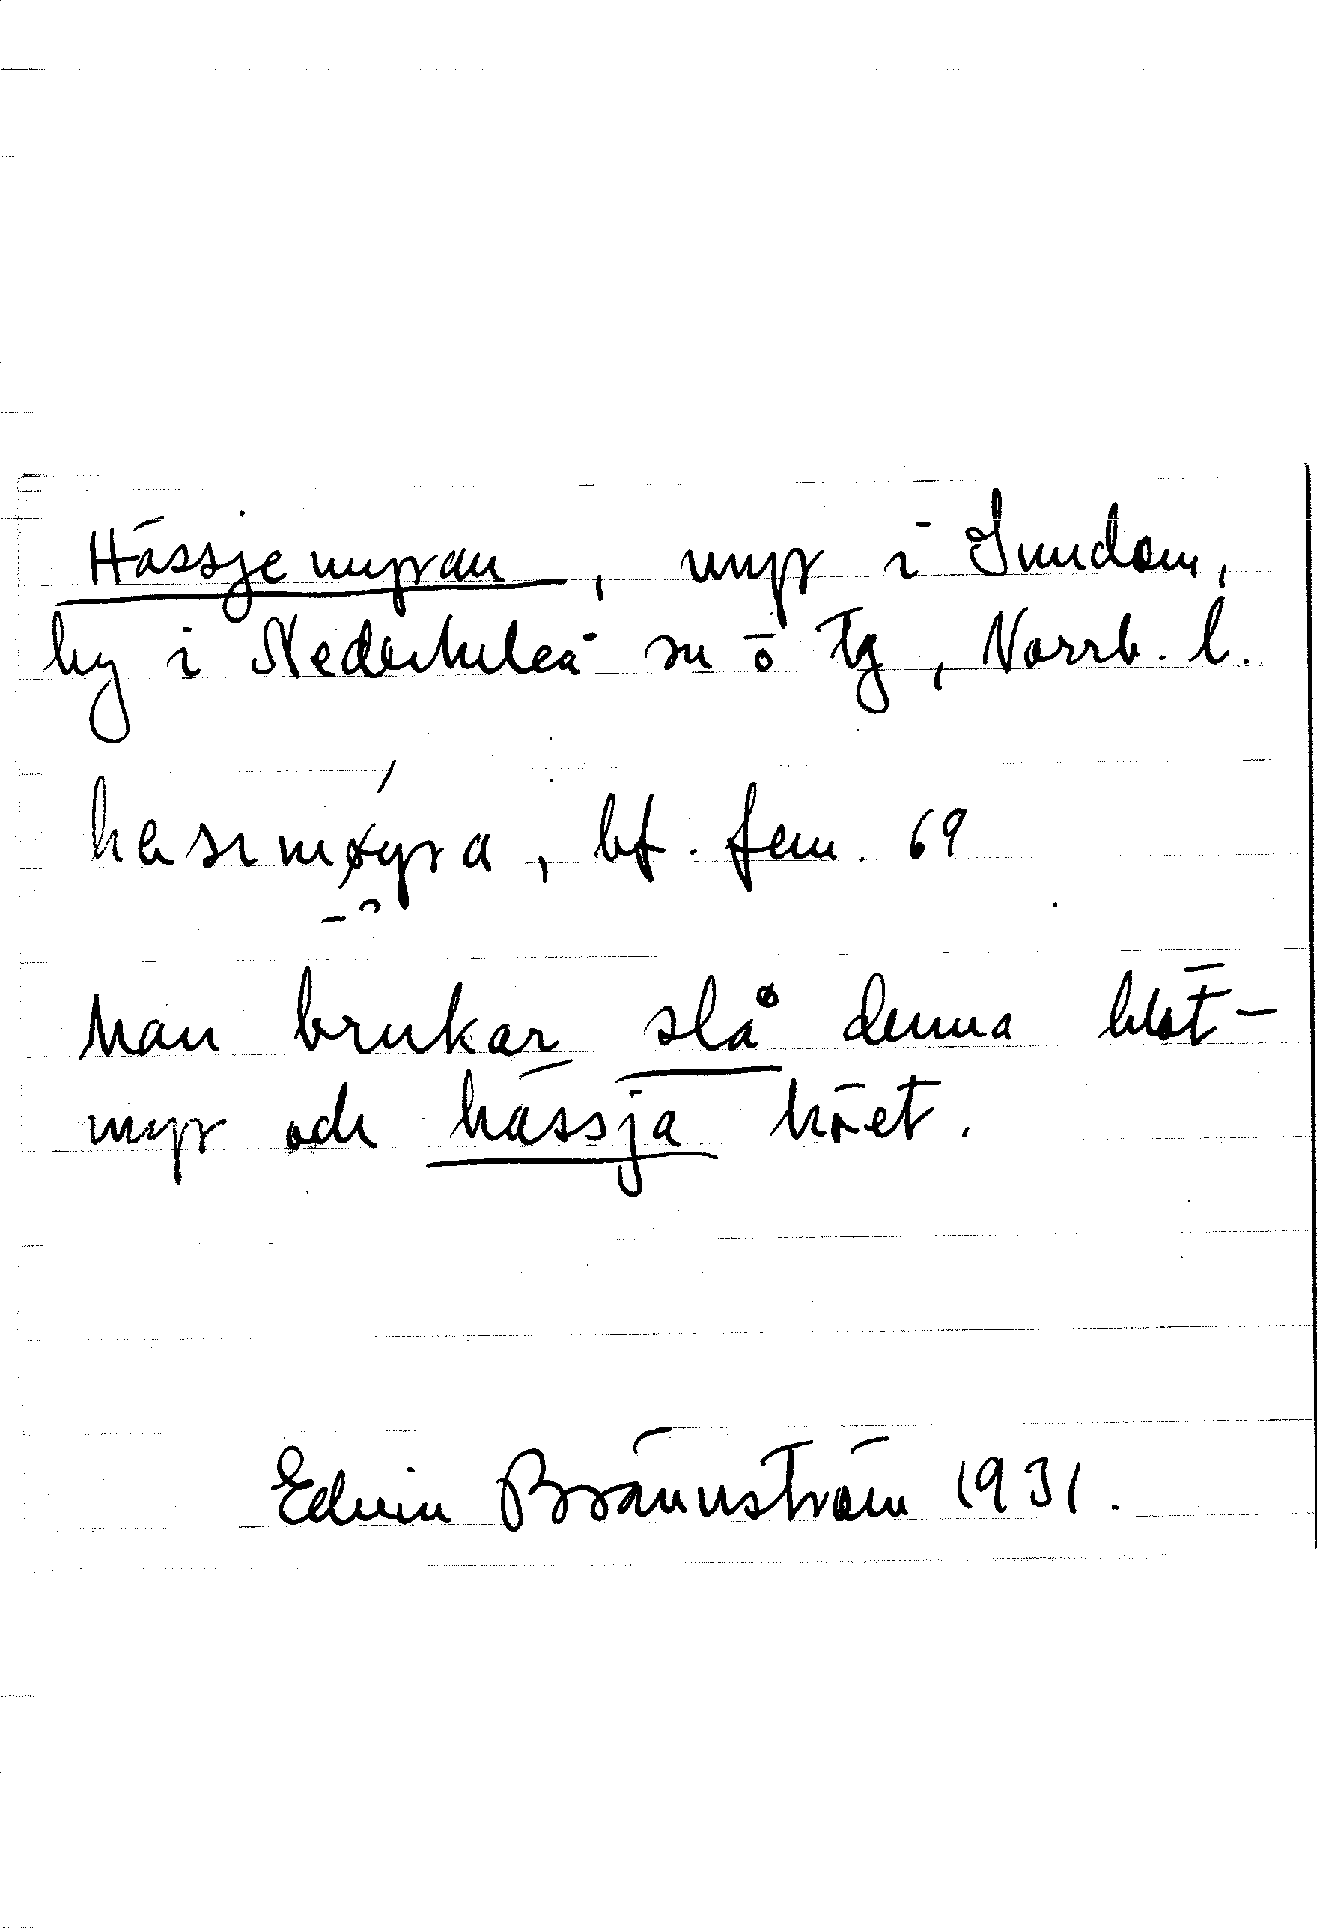 Hässjemyran, myr i Sundom,
by i Nederluleå sn o tg, Norrb. l.
bf. fem. 69
Man brukar slå denna blöt-
myr och hässja höet.
Edvin Brännström 1931.